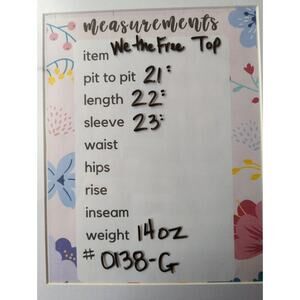 measurements
item We the Free Top
pit to pit 21"
length 22"
sleeve 23"
waist
hips
rise
inseam
weight 14oz
# 0138-G